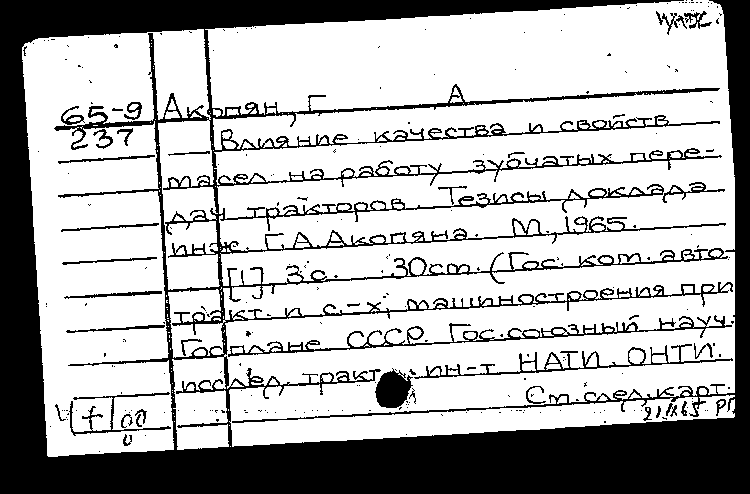 65-9 Акопян, Г А
237 Влияние качества и свойств
масел на работу зубчатых пере-
дач тракторов. Тезисы доклада
инж. Г.А. Акопяна. М., 1965.
[1], 3 с. 30 см. (Гос. ком. авто-
тракт. и с.-х, машиностроения при
Госплане СССР. Гос. союзный науч.
исслед. тракт. ин-т НАТИ. ОНТИ.
См. след. карт.